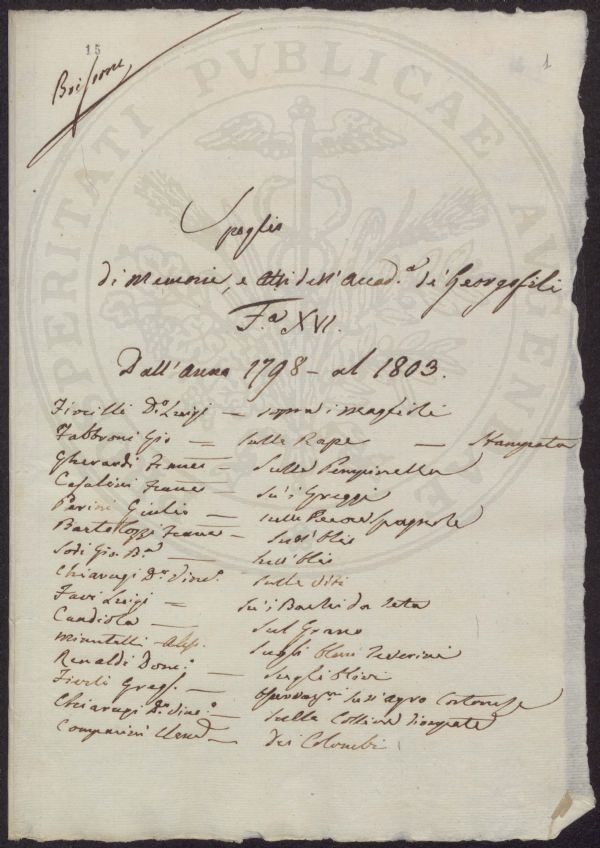 15
1
PROSPERITATI PVBLICAE AVGENDAE
Spoglio
di Memorie, e Atti dell'Accad.a de' Georgofili
F.a XVI.
Dall'Anno 1798 - al 1803.
Fiorilli D.r Luigi — sopra i maglioli
Fabbroni Gio — sulle Rape — Stampata
Gherardi Frances — Sulla Pimpinella
Casalini Frances — su' i Greggi
Perini Giulio — sulle Pecore Spagnole
Bartolozzi Frances — Sull'olio
Sodi Gio. B.a — sull'olio
Chiarugi D.r Vinc.o sulle viti
Favi Luigi — su' i Bachi da Seta
Candiola — sul Grano
Minutelli Aless. sugli
Renaldi Dom. — sugli Olivi
Fiorili Greg. — sull'agro Cortonese
Chiarugi D.r Vinc.o — sulla
Comparini — dei Colombi